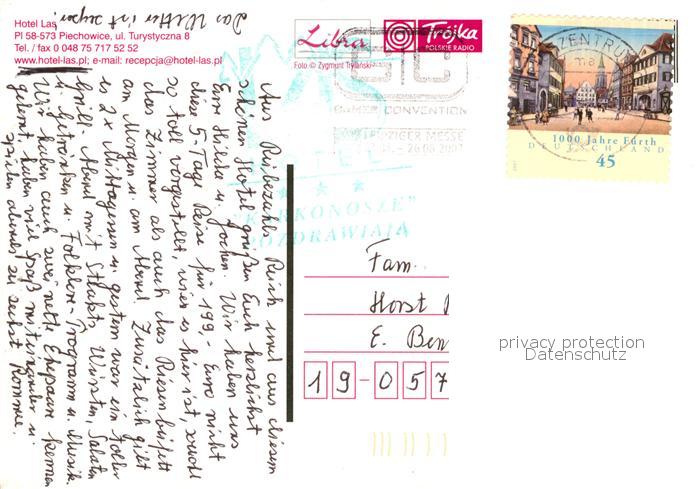 Hotel Las
Pl 58-573 Piechowice, ul. Turystyczna 8
Tel. / fax 0 048 75 717 52 52
www.hotel-las.pl; e-mail: recepcja@hotel-las.pl
Das Wetter ist super!
Libra
Trójka
POLSKIE RADIO
Foto © Zygmunt Trylański
GC
GAMES CONVENTION
LEIPZIGER MESSE
- 26.08.2007
ZENTRUM
1000 Jahre Fürth
DEUTSCHLAND
45
"KARKONOSZE"
POZDRAWIAJĄ
Aus Rübezahls Reich und aus diesem
schönen Hotel grüßen Euch herzlichst
Eure u. Jochen. Wir haben uns
diese 5-Tage Reise für 199,- Euro nicht
so toll vorgestellt, wie es hier ist, sowohl
das Zimmer als auch das Riesenbüfett
am Morgen u. am Abend. Zusätzlich gibt
es 2x Mittagessen u. gestern war ein toller
Grill-Abend mit Würsten, Salaten
u. Getränken u. Folklore-Programm u. Musik.
Wir haben auch zwei nette Ehepaare kennen
gelernt, haben viel Spaß miteinander u.
spielen abends zu sechst Rommee.
Fam.
Horst
E. Ben
19-057
privacy protection
Datenschutz